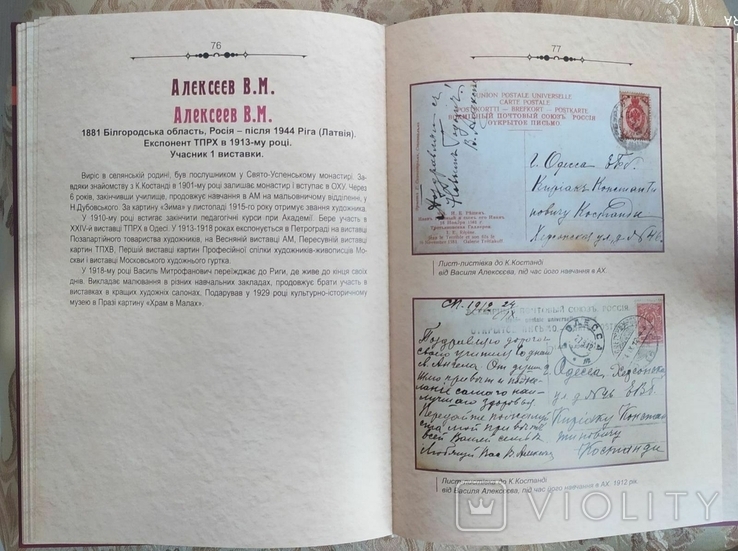 76
Алексєєв В.М.
Алексеев В.М.
1881 Білгородська область, Росія – після 1944 Ріга (Латвія).
Експонент ТПРХ в 1913-му році.
Учасник 1 виставки.
Виріс в селянській родині, був послушником у Свято-Успенському монастирі. Завдяки
знайомству з К.Костанді в 1901-му році залишає монастир і вступає в ОХУ. Через
6 років, закінчивши училище, продовжує навчання в АМ на мальовничому відділенні, у
Н.Дубовського. За картину «Зима» у листопаді 1915-го року отримує звання художника.
У 1910-му році встигає закінчити педагогічні курси при Академії. Бере участь в
XXIV-й виставці ТПРХ в Одесі. У 1913-1918 роках експонується в Петрограді на виставці
Позапартійного товариства художників, на Весняній виставці АМ, Пересувній виставці
картин ТПХВ, Першій виставці картин Професійної спілки художників-живописців Мос-
кви і виставці Московського художнього гуртка.
У 1918-му році Василь Митрофанович переїжджає до Риги, де живе до кінця своїх
днів. Викладає малювання в різних навчальних закладах, продовжує брати участь в
виставках в кращих художніх салонах. Подарував у 1929 році культурно-історичному
музею в Празі картину «Храм в Малах».
77
UNION POSTALE UNIVERSELLE
CARTE POSTALE
POSTIKORTTI - BREFKORT - POSTKARTE
ВСЕМІРНЫЙ ПОЧТОВЫЙ СОЮЗЪ РОССІЯ
ОТКРЫТОЕ ПИСЬМО
г. Одесса ЕВб.
Киріакъ Констан
новичу Костанди
Херсонская ул., д. №46.
Лист-листівка до К.Костанді
від Василя Алексєєва, під час його навчання в АХ.
ПОЧТОВЫЙ СОЮЗЪ. РОССІЯ
ОДЕССА
Поздравляю дорогого
своего учителя съ днемъ
Ангела. От души
шлю привѣт и поже-
ланіе самого наи-
лучшаго здоровья.
Передайте пожалуй
ста мой привѣт
всей Вашей семьѣ
Любящій Вас В. Алексѣев
Одесса, Херсонская
ул. д №46 ЕВб.
Киріаку Констан
тиновичу
Костанди
Лист-листівка до К.Костанді
від Василя Алексєєва, під час його навчання в АХ. 1912 рік.
VIOLITY